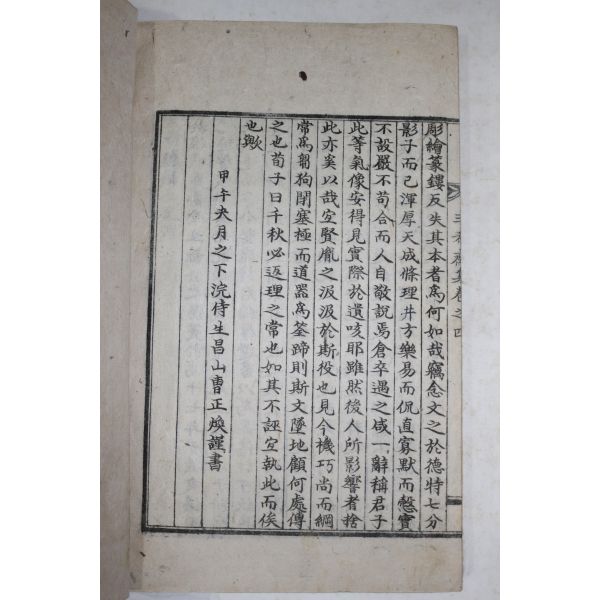 彫繪篆鏤反失其本者爲何如哉竊念文之於德特七分
影子而已渾厚天成條理井方樂易而侃直寡默而慤實
不設嚴不苟合而人自敬說焉倉卒遇之咸一辭稱君子
此等氣像安得見實際於遺咳耶雖然後人所影響者捨
此亦奚以哉宜賢胤之汲汲於斯役也見今機巧尚而綱
常爲芻狗閉塞極而道器爲筌蹄則斯文墜地顧何處傳
之也荀子曰千秋必返理之常也如其不誣宜執此而俟
也歟
甲午夾月之下浣侍生昌山曺正煥謹書
集卷之四